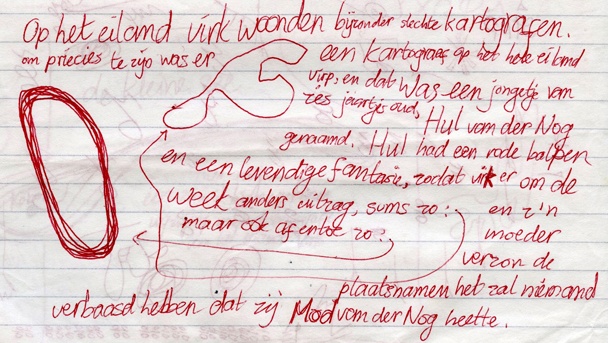 Op het eiland virk woonden bijzonder slechte kartografen.
om precies te zijn was er
een kartograaf op het hele eiland
virp, en dat was een jongetje van
zes jaartjes oud, Hul van der Nog
genaamd. Hul had een rode balpen
en een levendige fantasie, zodat virk er om de
week anders uitzag, sums zo:
maar ook af en toe zo:
en z'n
moeder
verzon de
plaatsnamen het zal niemand
verbaasd hebben dat zij Mod van der Nog heette.